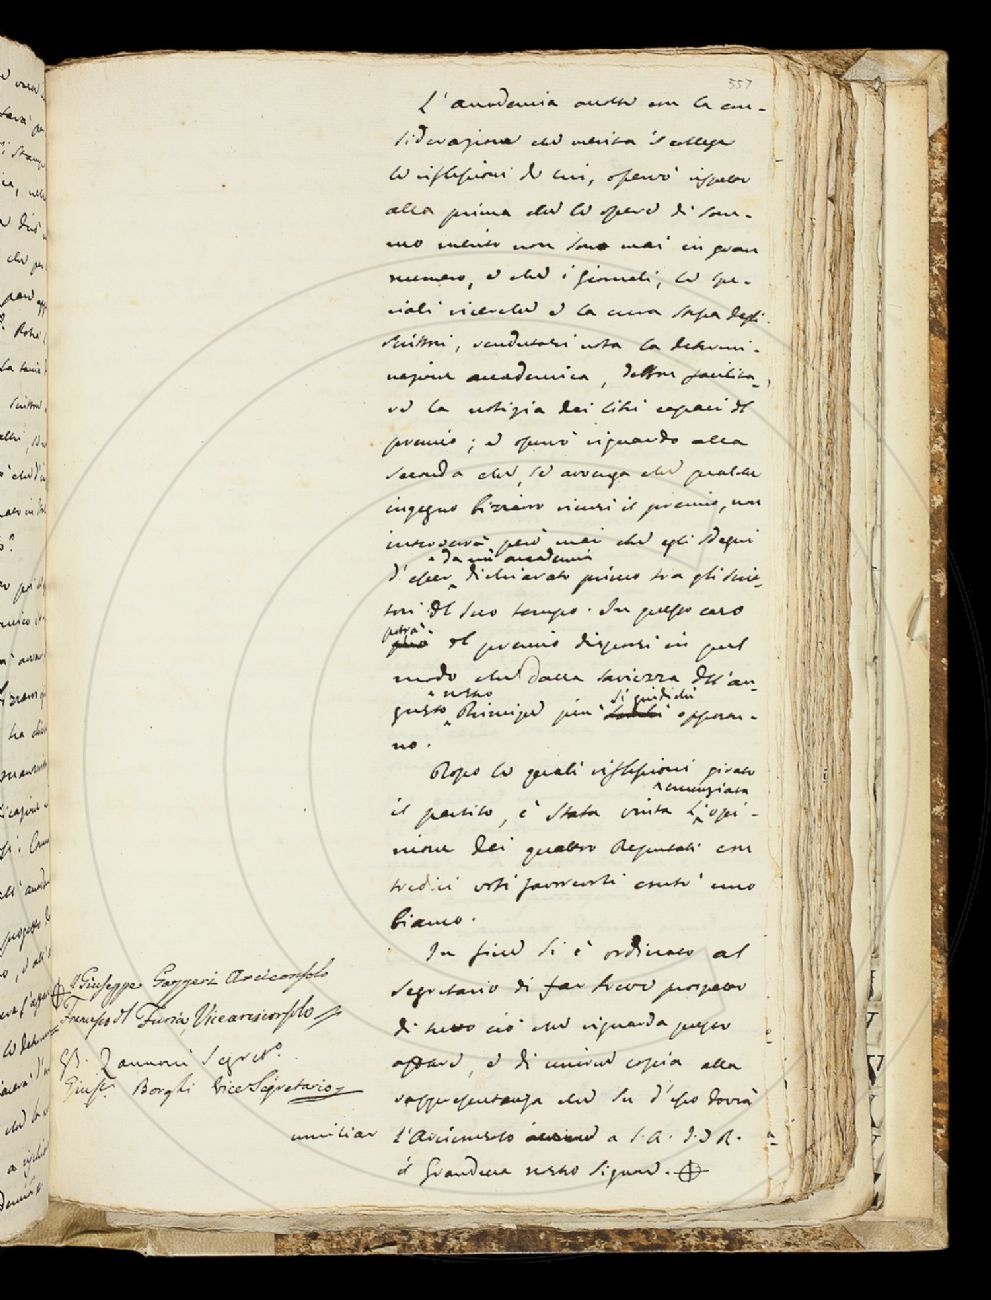 557
L'accademia accolse con la con-
siderazione che merita il collega
le riflessioni di lui, osservò rispetto
alla prima che le opere di som-
mo merito non sono mai in gran
numero, e che i giornali, le spe-
ciali ricerche e la cura stessa degli
scrittori, rendutasi nota la determi-
nazione accademica, debbon facilita-
re la notizia dei libri capaci del
premio; e osservò riguardo alla
seconda che, se avvenga che qualche
ingegno bizzarro ricusi il premio, non
interverrà però mai che egli sdegni
da un' accademia
d'esser dichiarato primo tra gli scrit-
tori del suo tempo. In questo caso
potrà
può il premio disporsi in quel
modo che dalla saviezza dell'au-
nostro si giudichi
gusto Principe più sembri opportu-
no.
Dopo le quali riflessioni girato
enunziata
il partito, è stata vinta l' opi-
nione dei quattro Deputati con
tredici voti favorevoli contr' uno
bianco.
In fine si è ordinato al
Segretario di far breve prospetto
di tutto ciò che riguarda questo
affare, e di unirne copia alla
rappresentanza che su d'esso dovrà
umiliar l'Arciconsolo a S. A. I. e R.
il Granduca nostro Signore.
Giuseppe Gazzeri Arciconsolo
Francesco del Furia Vicearciconsolo
G. B. Zannoni Segret.o
Gius. Borghi Vice Segretario